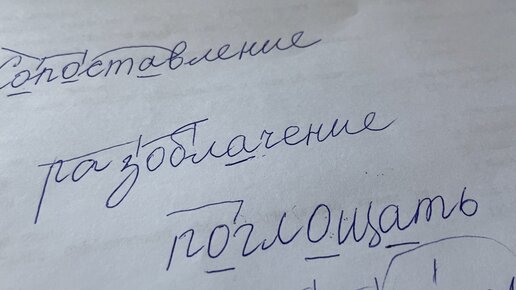 Сопоставление
разоблачение
поглощать